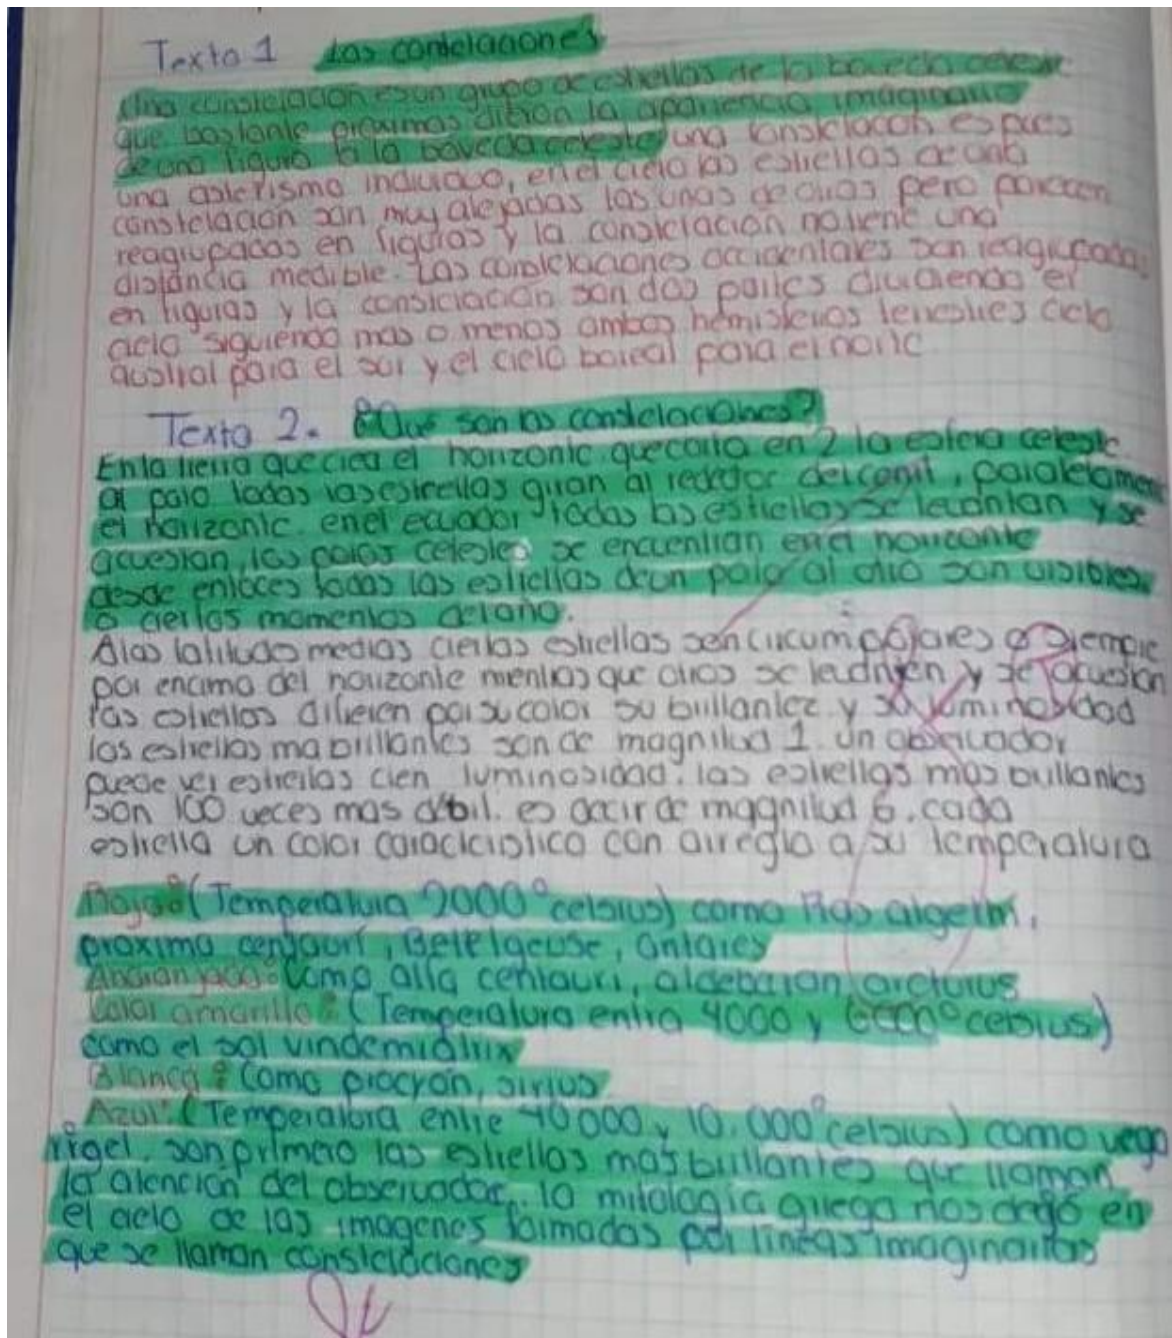 Texto 1 Las constelaciones
Una constelación es un grupo de estrellas de la boveda celeste
que bastante proximas dieron la apariencia imaginaria
de una figura a la boveda celeste una constelacon es pues
una asterismo individuo, en el cielo las estrellas de una
constelación son muy alejadas las unas de otras pero parecen
reagrupadas en figuras y la constelación no tiene una
distancia medible. Las constelaciones occidentales son reagrupadas
en figuras y la constelación son dos partes dividiendo el
cielo siguiendo mas o menos ambos hemisferios terrestres cielo
austral para el sur y el cielo boreal para el norte
Texto 2. ¿Qué son las constelaciones?
En la tierra que crea el horizonte que corta en 2 la esfera celeste
al polo todas las estrellas giran al rededor del cenit, paralelamente
el horizonte. en el ecuador todas las estrellas se levantan y se
acuestan, los polos celestes se encuentran en el horizonte
desde entoces todas las estrellas de un polo al otro son visibles
a ciertos momentos del año.
A las latitudes medias ciertas estrellas sen circumpolares o siempre
por encima del horizonte mentras que otras se leванten y se acuestan
las estrellas difieren por su color su brillantez y su luminosidad
las estrellas ma brillantes son de magnitud 1. Un observador
puede ver estrellas cien luminosidad. las estrellas mas brillantes
son 100 veces mas débil. es decir de magnitud 6. cada
estrella un color caracteristico con arreglo a su temperatura
Rojo: (Temperatura 2000° celsius) como Ras algethi,
proxima centauri, Betelgeuse, Antares
Anaranjado: Como alfa centauri, aldebaran arcturus
Color amarillo: (Temperatura entra 4000 y 6000° celsius)
como el sol vindemiatrix
Blanca: Como procyon, sirius
Azul: (Temperatura entre 40000 y 10.000° celsius) como vega
rigel. son primero las estrellas mas brillantes que llaman
la atención del observador. la mitologia griega nos dejó en
el cielo de las imagenes formadas por lineas imaginarias
que se llaman constelaciones